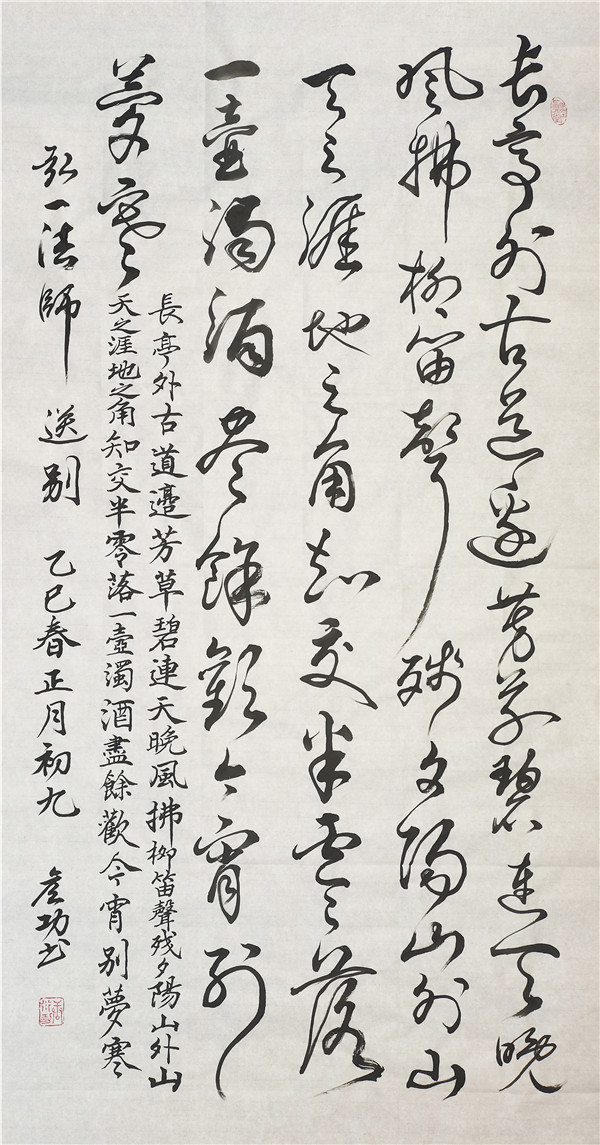 长亭外古道边芳草碧连天晚
风拂柳笛聲残夕陽山外山
天之涯地之角知交半零落
一壶濁酒尽餘歡今宵别
夢寒
長亭外古道邊芳草碧連天晚風拂柳笛聲残夕陽山外山
天之涯地之角知交半零落一壺濁酒盡餘歡今宵别夢寒
弘一法師 送别 乙巳春正月初九 功书